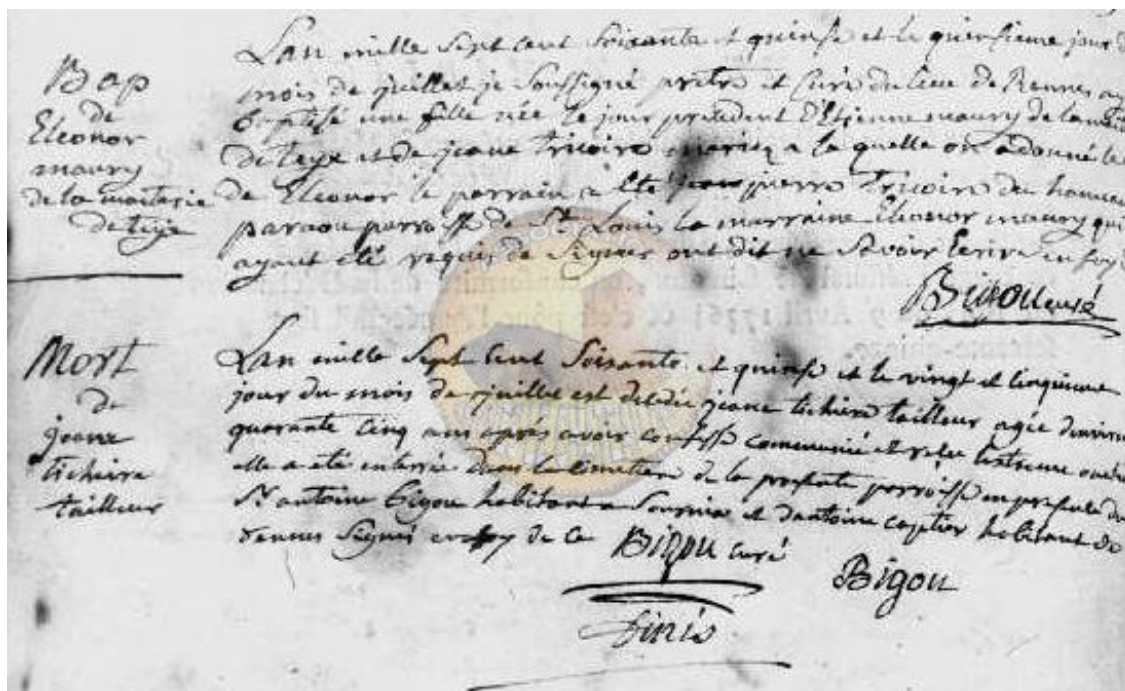 Bap
de
Eleonor
maury
de la maiterie
de teye
Lan mille Sept Cent Soixante et quinse et le quinsieme jour d
mois de juillet je Soussigné pretre et Curé du lieu de Rennes ay
Baptisé une fille née le jour precedent d'Etienne maury de la
de teye et de jeane tricoire mariez a la quelle on a donné le
de Eleonor le parrain a été pierre tricoire du hameau
paraou parroisse de St Louis la marraine Eleonor maury qui
ayant été requis de Signer ont dit ne Savoir Ecrire en foy
Bigou curé
Mort
de
jeane
tichaire
tailleur
Lan mille Sept Cent Soixante et quinse et le vingt et cinquieme
jour du mois de juillet est decedée jeane tichiere tailleur agée denviron
quarante Cinq ans aprés avoir confessé communié et reçu
elle a eté enterrée dans le Cimetiere de la presente parroisse en presence du
Sr antoine Bigou habitant a Sournia et dantoine captier habitant de
rennes Signés de ce Bigou curé
Bigou
finis